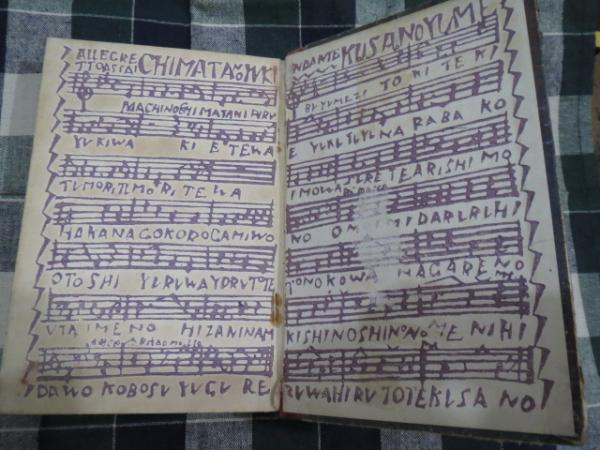 ALLEGRE
TTO ASSAI
CHIMATA NO YUKI
MACHINO CHIMATANI FURU
YUKIWA KI E TEWA
TUMORI TUMO RI TE WA
HAKANAGOKORO GAMIWO
OTOSHI YURUWA YORU TOTE
UTAIMENO HIZANINAM
DAWO KOBOSU YUGU RE
KUSANOYUME
TO KI TE KI
E YUKU TUYUNA RABA KO
IMOWA SURETEARISHI MO
NO OMOI MIDARURUHI
TONOKOWA NAGARE NO
KISHINOSHINONOME NIHI
RUWAHIRU TOTEKUSA NO